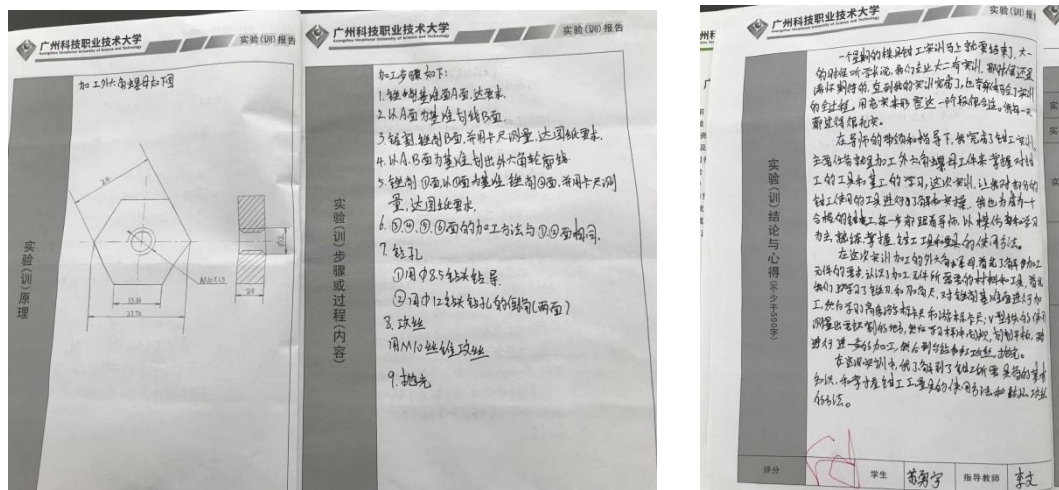 广州科技职业技术大学
Guangzhou Vocational University of Science and Technology
实验(训)报告
实验(训)原理
加工外六角螺母如下图
24
M10X1.5
20
27.72
广州科技职业技术大学
Guangzhou Vocational University of Science and Technology
实验(训)报告
实验(训)步骤或过程(内容)
加工步骤如下:
1.锉削基准面A面,达要求.
2.以A面为基准划线B面.
3.锯割,锉削B面,并用卡尺测量,达图纸要求.
4.以A.B面为基准划出外六角轮廓线
5.锉削①面,以①面为基准,锉削②面,并用卡尺测
量,达图纸要求.
6.③,④,⑤,⑥面的加工方法与①,②面相同.
7.钻孔
①用Φ8.5钻头钻导
②用Φ12钻头钻孔的倒角(两面)
8.攻丝
用M10丝锥攻丝
9.抛光
广州科技职业技术大学
Guangzhou Vocational University of Science and Technology
实验(训)报
实验(训)结论与心得(不少于500字)
一个星期的模具钳工实训马上就要结束了,大一
的时候听学长说,我们专业大二有实训,那时候还是
满怀期待的,直到我的实训完毕了,也算体验了实训
的全过程,用充实来形容这一阶段很合适,
都过得很充实。
在导师的带领和指导下,我完成了钳工实训,
主要任务就是加工外六角螺母工件来掌握对钳
工的工具和基工的学习,这次实训,让我对部分的
钳工使用的工具进行了了解和掌握,
合格的钳工每一步都跟着导师,以模仿和学习
为主,熟练,掌握,钳工工具和量具的使用方法。
在这次实训加工的外六角螺母,首先了解加工
元件的要求,认识了加工元件所需要的材料和工具,首先
进行进一步的加工,然后到台钻和攻丝,抛光。
在这次实训中,我了解到了钳工所需具备的基本
知识,和学于是钳工工量具的使用方法和钻孔,攻丝
的方法。
评分
学生
指导教师
李文